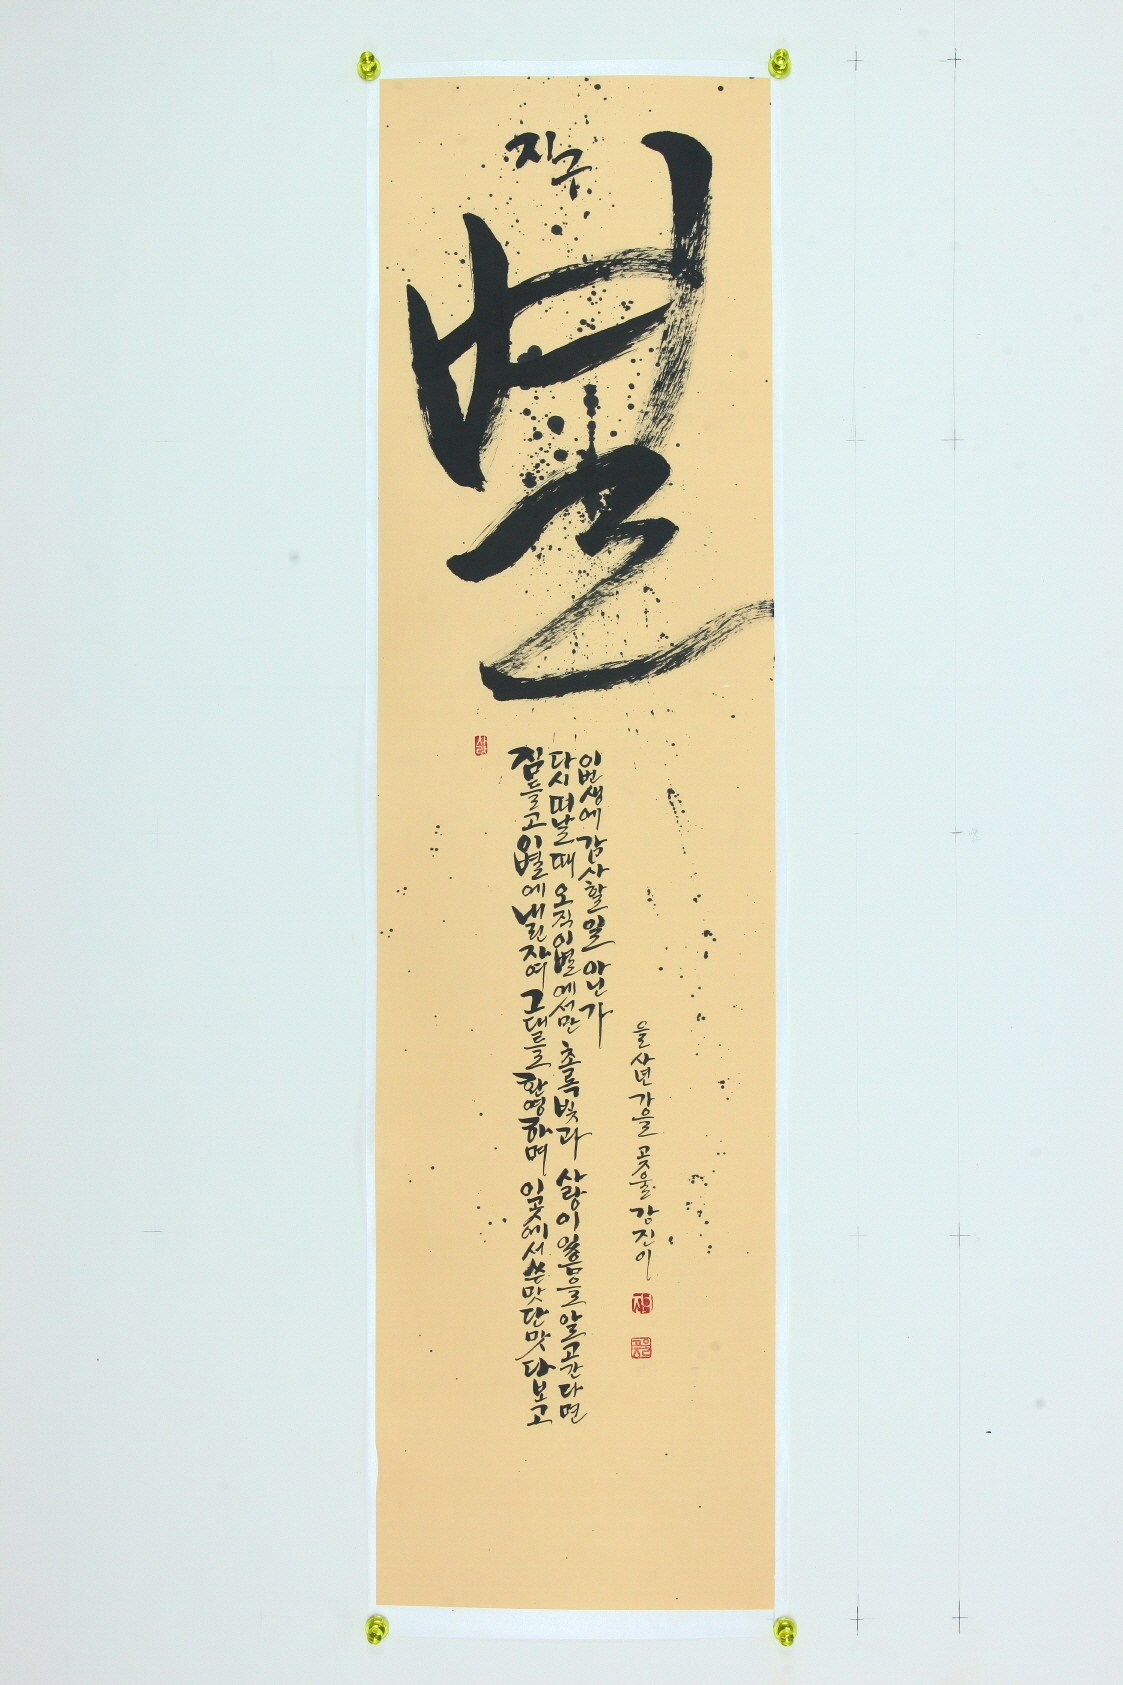 지구
별
짐들고 이 별에 내린 자여 그대를 환영하며 이곳에서 쓴맛 단맛 다 보고
다시 떠날 때 오직 이 별에서만 초록빛과 사랑이 있음을 알고 간다면
이번 생에 감사할 일 아닌가
을사년 가을 곳울 강진이
사랑